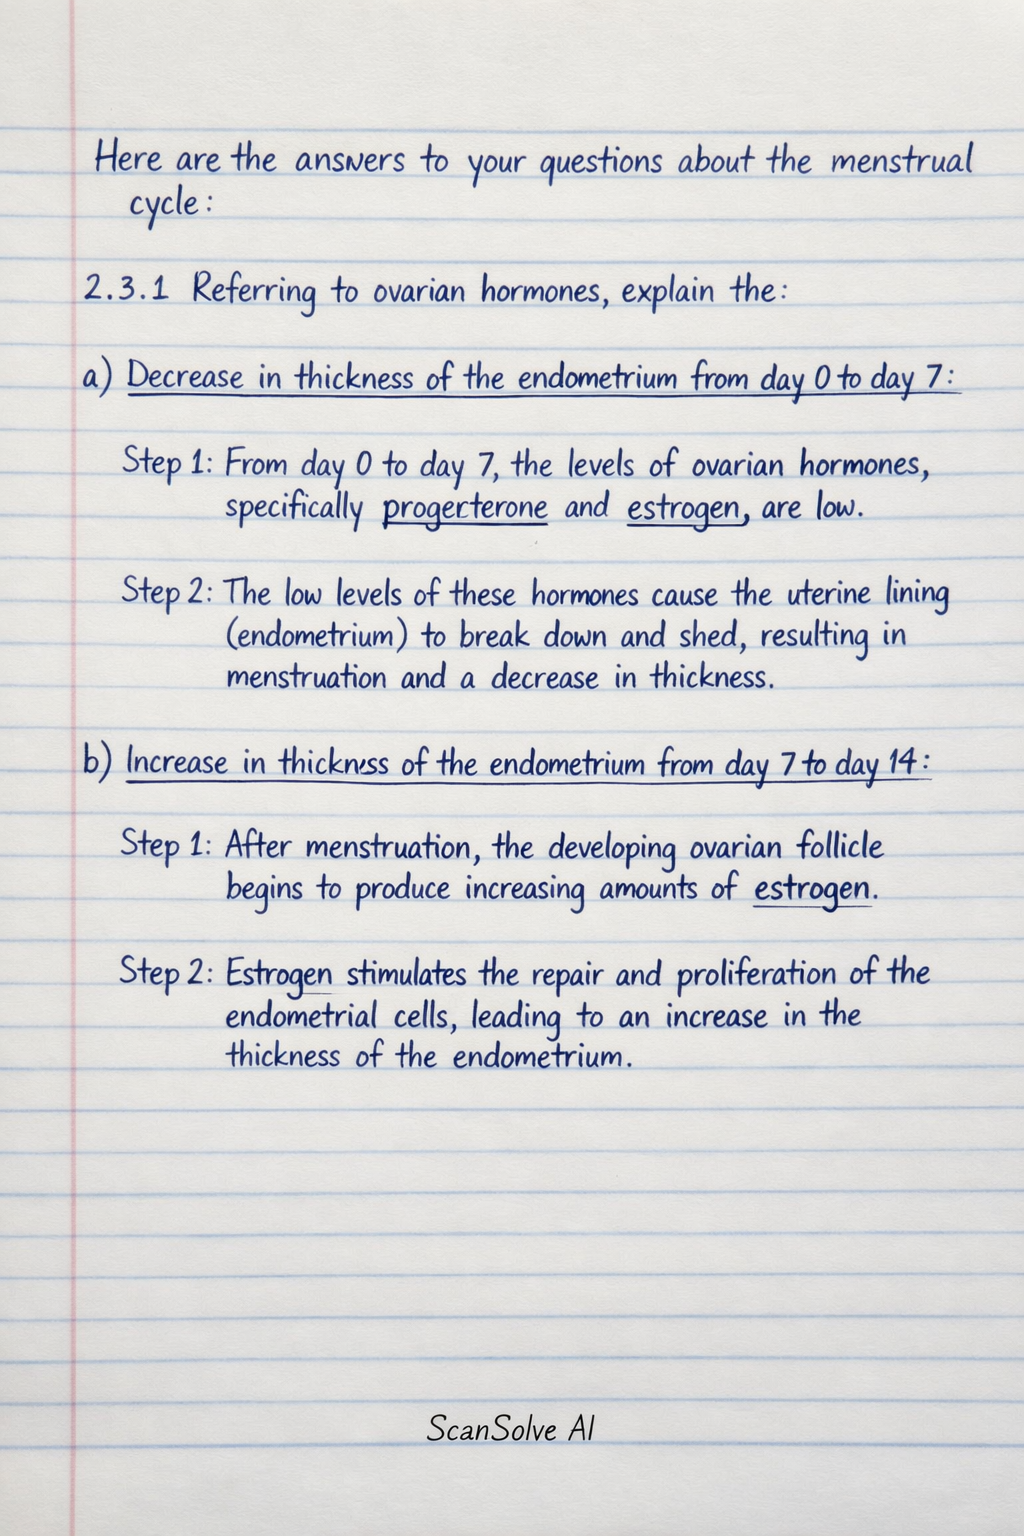 Here are the answers to your questions about the menstrual
cycle:
2.3.1 Referring to ovarian hormones, explain the:
a) Decrease in thickness of the endometrium from day 0 to day 7:
Step 1: From day 0 to day 7, the levels of ovarian hormones,
specifically progerterone and estrogen, are low.
Step 2: The low levels of these hormones cause the uterine lining
(endometrium) to break down and shed, resulting in
menstruation and a decrease in thickness.
b) Increase in thicknss of the endometrium from day 7 to day 14:
Step 1: After menstruation, the developing ovarian follicle
begins to produce increasing amounts of estrogen.
Step 2: Estrogen stimulates the repair and proliferation of the
endometrial cells, leading to an increase in the
thickness of the endometrium.
ScanSolve AI